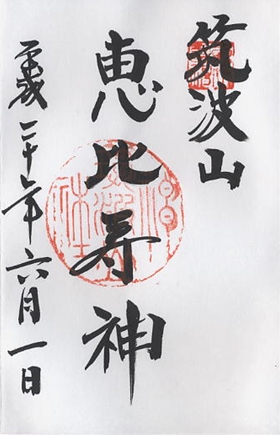 筑波山
恵比寿神
平成二十六年六月一日